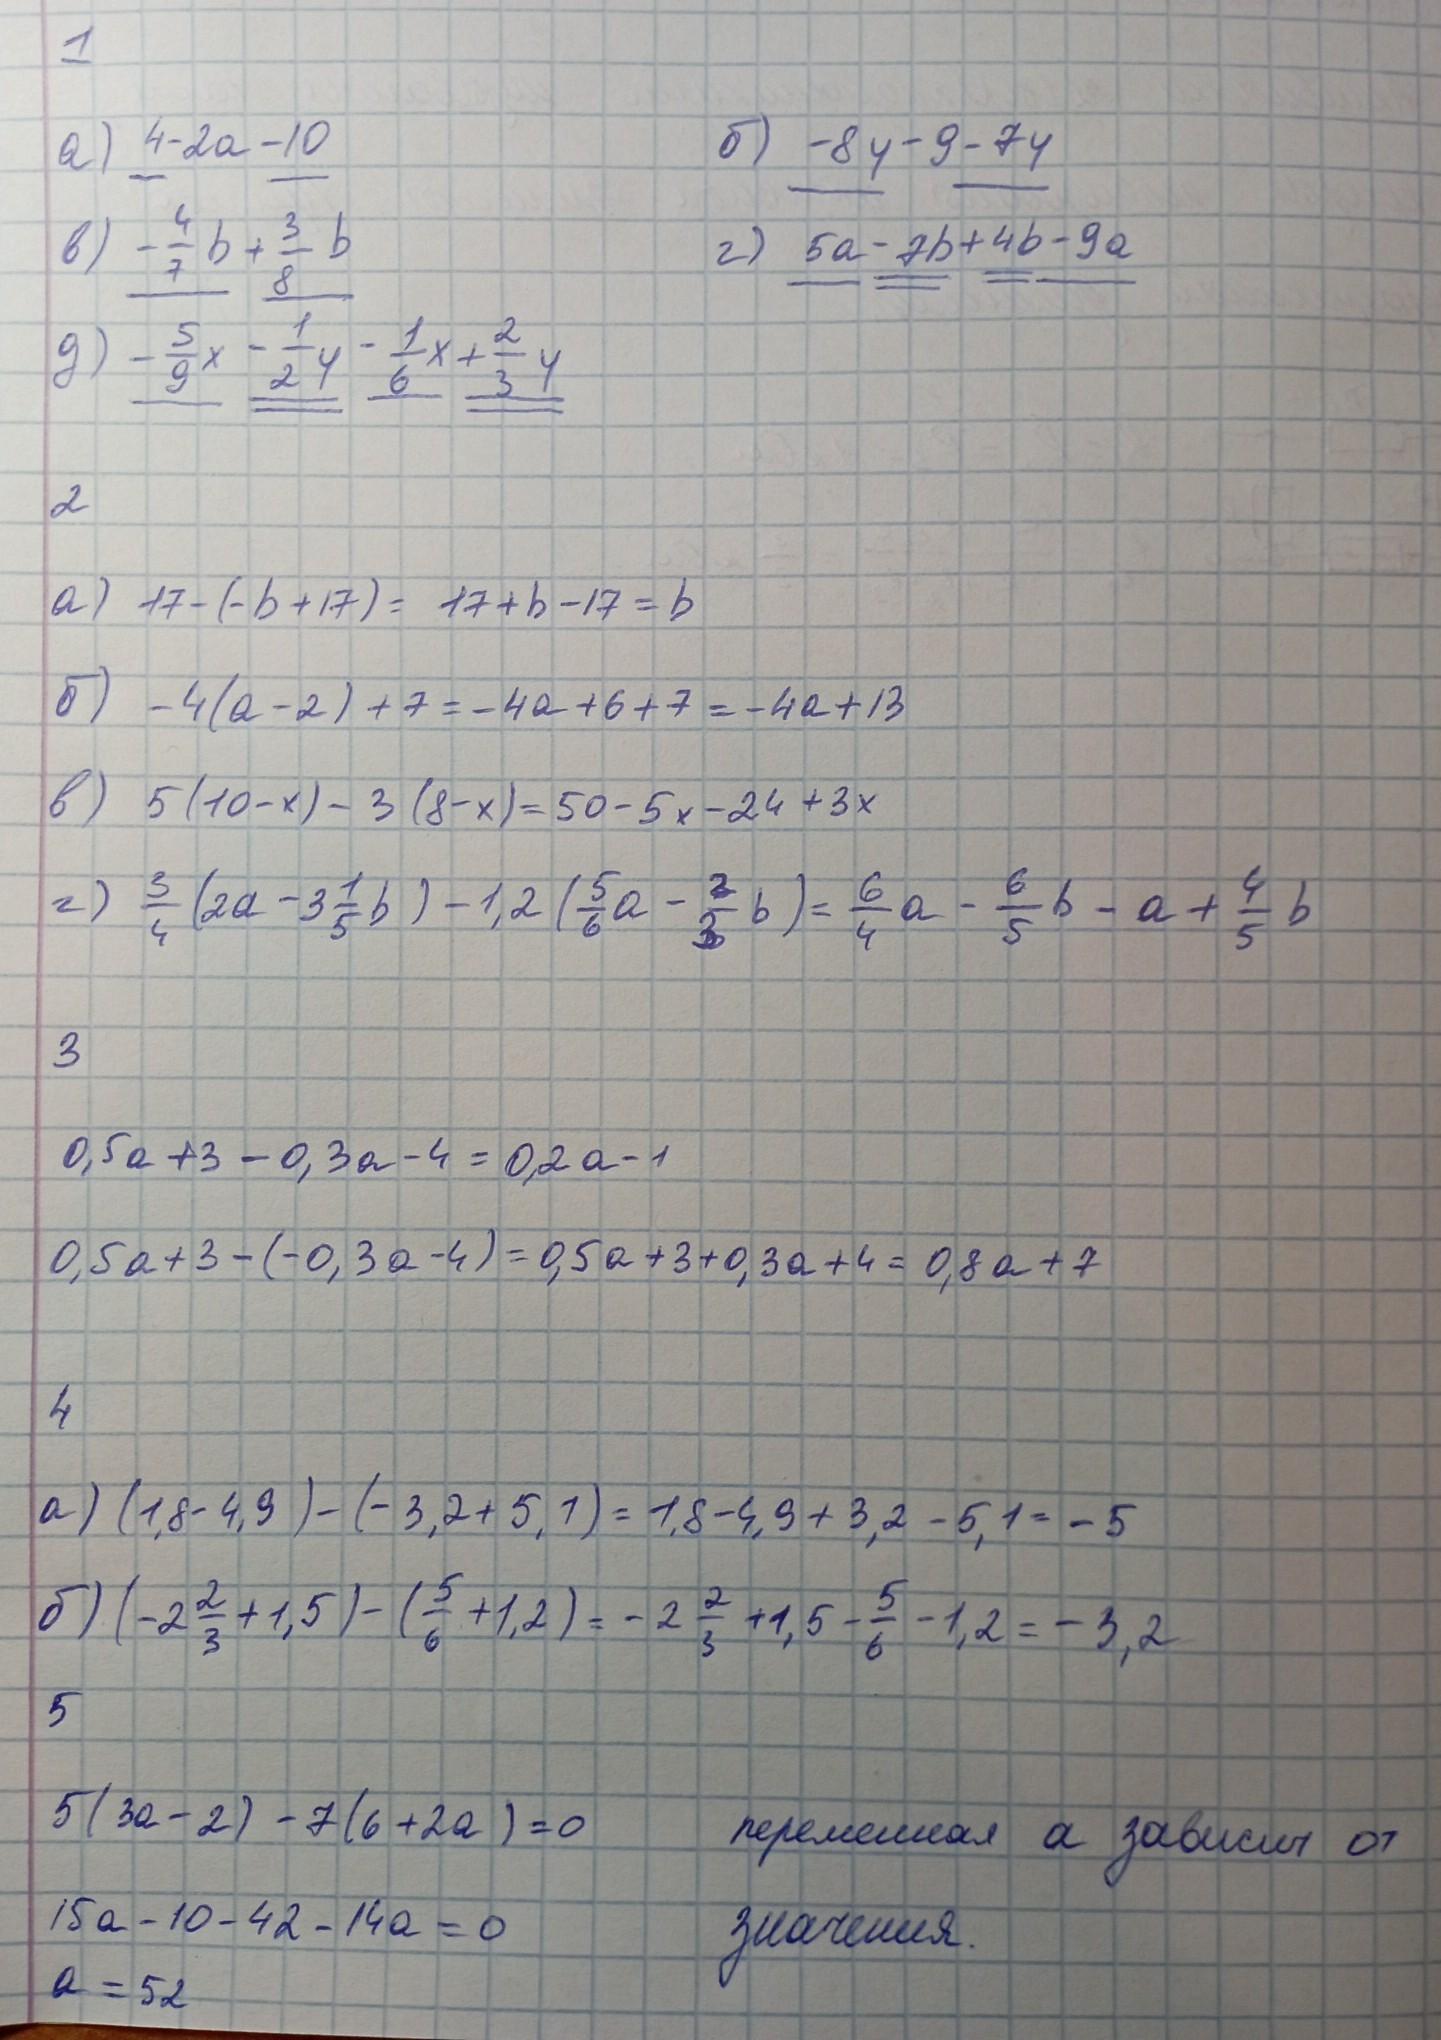 1
а) 4-2a-10 б) -8y-9-7y
в) -4/7 b + 3/8 b г) 5a-7b+4b-9a
д) -5/9 x - 1/2 y - 1/6 x + 2/3 y
2
а) 17-(-b+17)= 17+b-17=b
б) -4(a-2)+7=-4a+6+7=-4a+13
в) 5(10-x)-3(8-x)=50-5x-24+3x
г) 3/4 (2a - 3 1/5 b) - 1,2 (5/6 a - 2/3 b) = 6/4 a - 6/5 b - a + 4/5 b
3
0,5a+3-0,3a-4=0,2a-1
0,5a+3-(-0,3a-4)=0,5a+3+0,3a+4=0,8a+7
4
а) (1,8-4,9)-(-3,2+5,1)=1,8-4,9+3,2-5,1=-5
б) (-2 2/3 +1,5)-(5/6 +1,2)=-2 2/3 +1,5- 5/6 -1,2=-3,2
5
5(3a-2)-7(6+2a)=0 переменная a зависит от
15a-10-42-14a=0 значения.
a=52